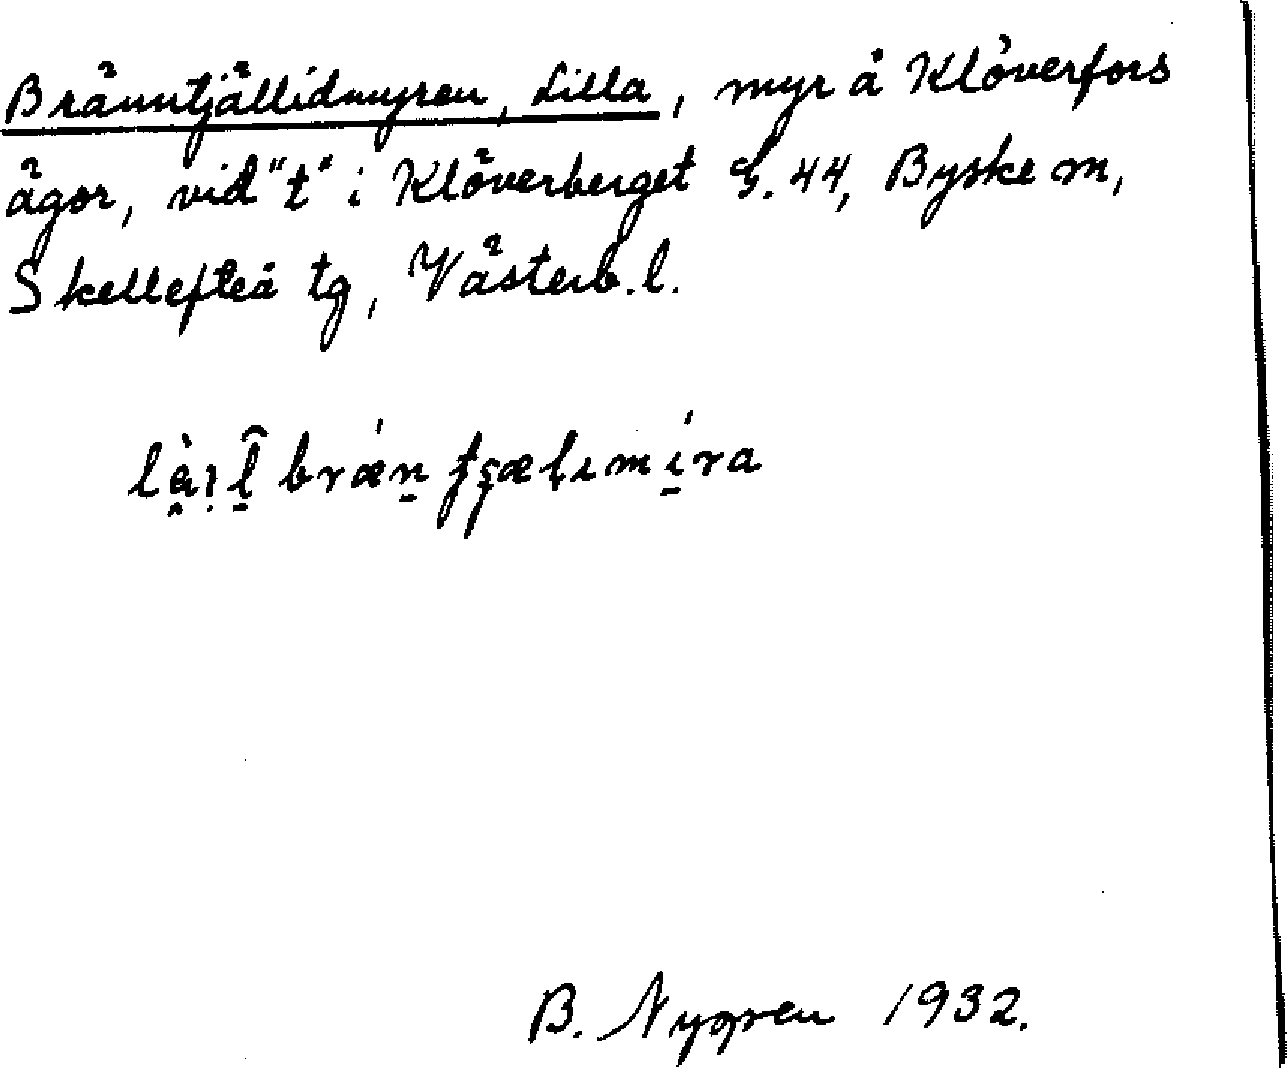 Bränntjällidmyren, Lilla, myr å Klöverfors
ägor, vid "t" i Klöverberget G. 44, Byske sn,
Skellefteå tg, Västerb. l.
B. Nygren 1932.